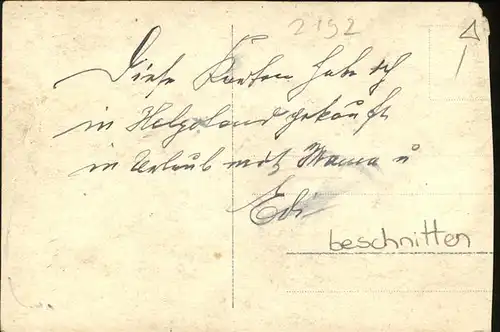 2192
Diese Karten habe ich
in Helgoland gekauft
im Urlaub mit Mama u
Edi
beschnitten